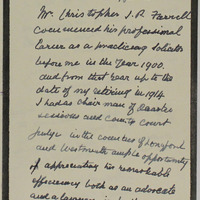 Mr. Christopher J. P. Farrell
commenced his professional
career as a practising Solicitor
before me in the Year 1900.
and from that year up to the
date of my retiring in 1914
I had as chairman of Quarter
sessions and County Court
Judge in the counties of Longford
and Westmeath ample opportunity
of appreciating his remarkable
efficiency both as an advocate
and a lawyer